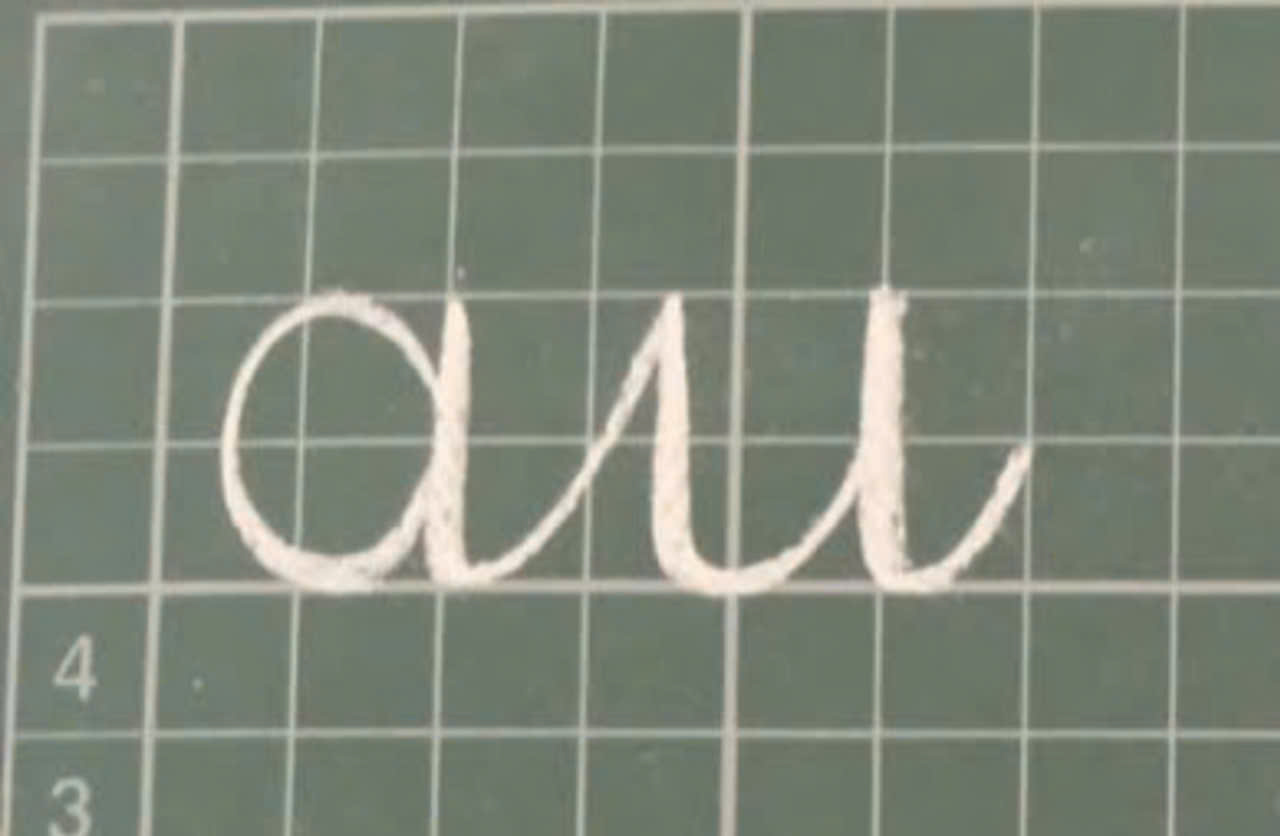 au
4
3